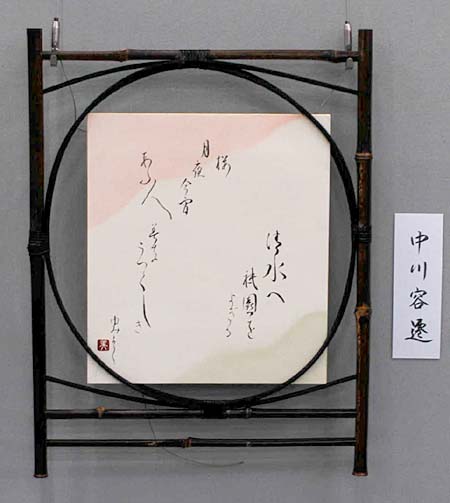 清水へ
祇園を
よぎる
桜
月夜
今宵
あふ人
みな
うつくしき
中川容遷